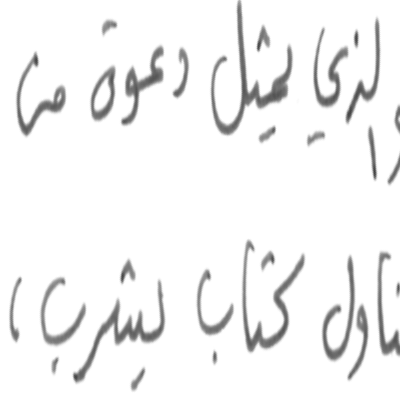 الذي يمثل دعوة من
ناول كتاب ليشرب ،